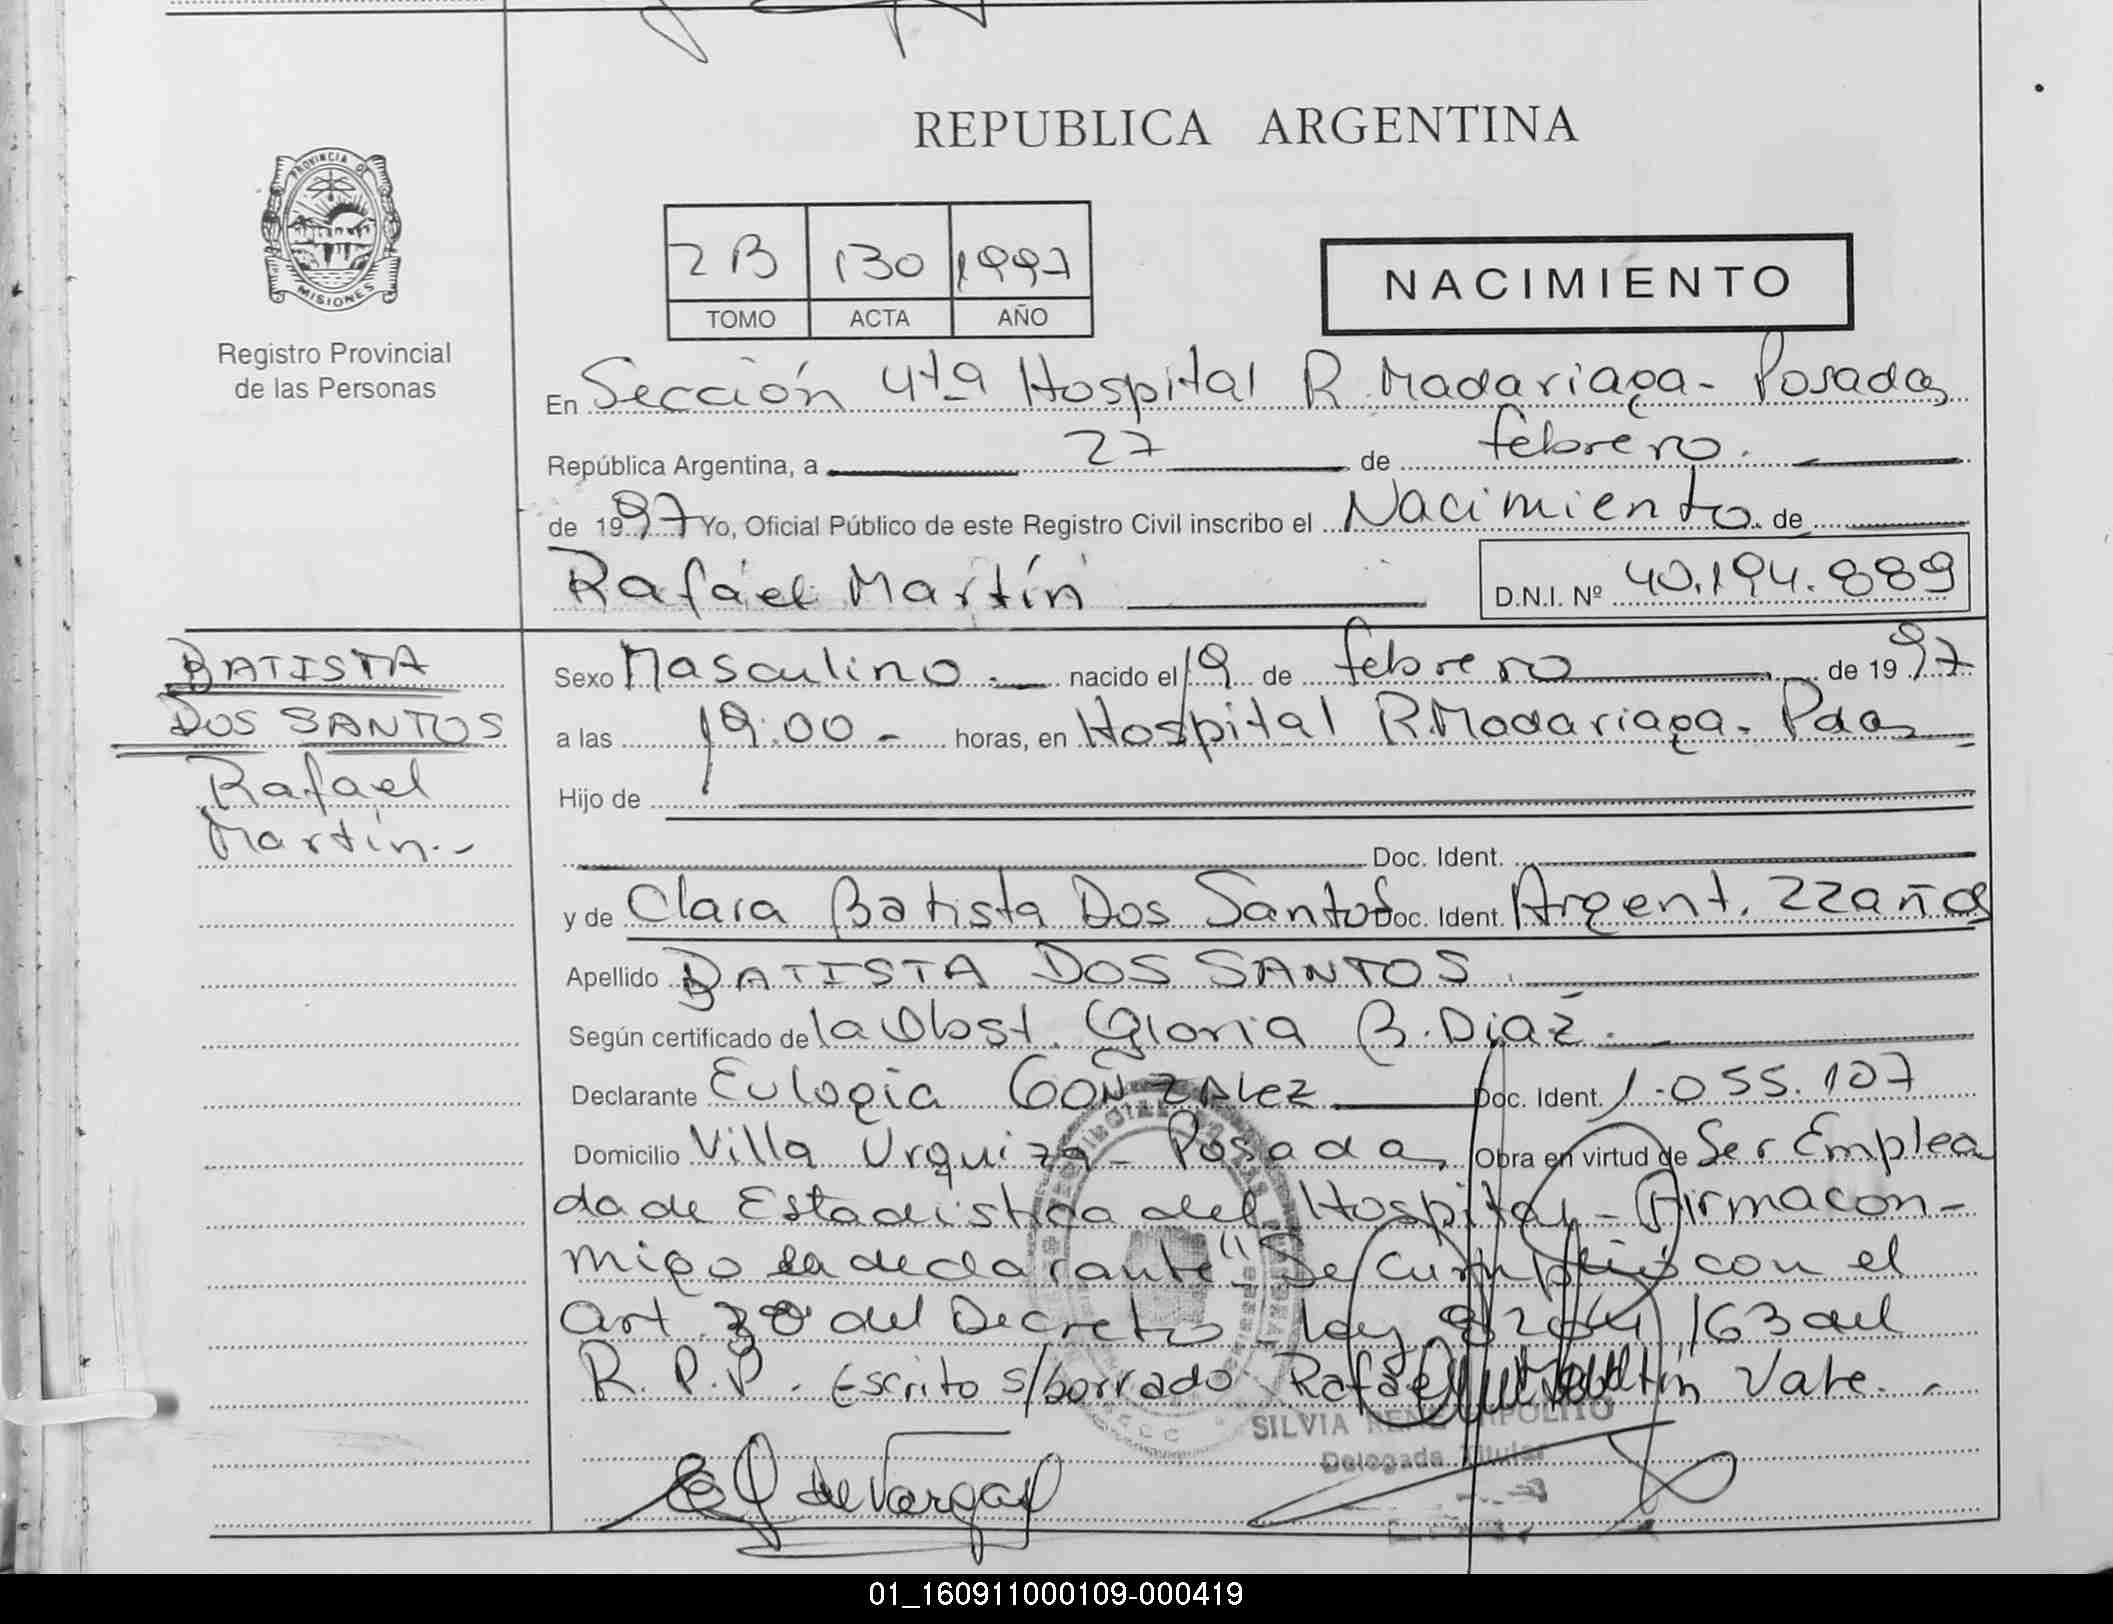 REPUBLICA ARGENTINA
PROVINCIA DE
MISIONES
Registro Provincial
de las Personas
2B 130 1997
TOMO ACTA AÑO
NACIMIENTO
En Sección 4ta Hospital R. Madariaga - Posadas
República Argentina, a 27 de febrero.
de 1997 Yo, Oficial Público de este Registro Civil inscribo el Nacimiento. de
Rafael Martín
D.N.I. Nº 40.194.889
BATISTA
DOS SANTOS
Rafael
Martín.-
Sexo Masculino.- nacido el 19 de febrero de 1997
a las 19:00 - horas, en Hospital R. Madariaga - Pdas
Hijo de
Doc. Ident.
y de Clara Batista Dos Santos Doc. Ident. Argent. 22 años
Apellido BATISTA DOS SANTOS.
Según certificado de la Obst. Gloria B. Diaz.
Declarante Eulogia GONZALEZ Doc. Ident. 1.055.107
Domicilio Villa Urquiza - Posadas Obra en virtud de Ser Emplea
da de Estadistica del Hospital - Firma con-
migo la declarante" Se cumplió con el
Art. 38 del Decreto Ley 8204/63 del
R.P.P. Escrito s/borrado Rafael Martín Vale.-
SILVIA HIPOLITO
Delegada Titular
E G de Vargas
01_160911000109-000419